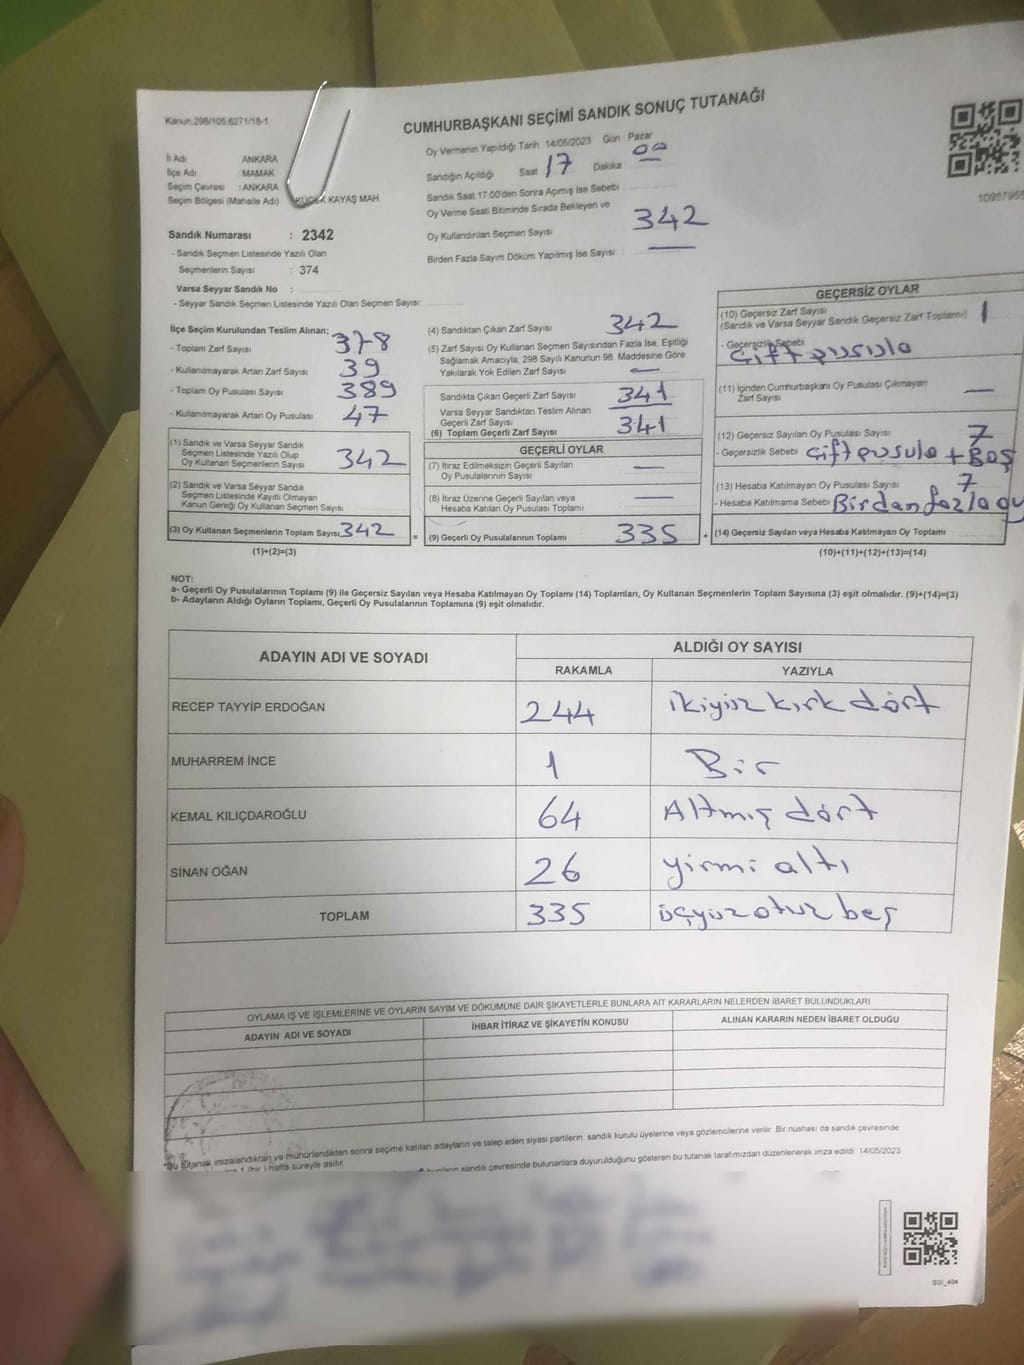 Kanun.298/105:6271/18-1
CUMHURBAŞKANI SEÇİMİ SANDIK SONUÇ TUTANAĞI
İl Adı ANKARA
İlçe Adı MAMAK
Seçim Çevresi : ANKARA
Seçim Bölgesi (Mahalle Adı) KAYAŞ MAH.
Sandık Numarası : 2342
- Sandık Seçmen Listesinde Yazılı Olan
Seçmenlerin Sayısı : 374
Varsa Seyyar Sandık No :
- Seyyar Sandık Seçmen Listesinde Yazılı Olan Seçmen Sayısı
Oy Vermenin Yapıldığı Tarih 14/05/2023 Gün Pazar
Sandığın Açıldığı Saat 17 Dakika 00
Sandık Saat 17.00'den Sonra Açmış İse Sebebi
Oy Verme Saati Bitiminde Sırada Bekleyen ve
Oy Kullandırılan Seçmen Sayısı 342
Birden Fazla Sayım Döküm Yapılmış İse Sayısı : —
İlçe Seçim Kurulundan Teslim Alınan;
- Toplam Zarf Sayısı 378
- Kullanılmayarak Artan Zarf Sayısı 39
- Toplam Oy Pusulası Sayısı 389
- Kullanılmayarak Artan Oy Pusulası 47
(1) Sandık ve Varsa Seyyar Sandık
Seçmen Listesinde Yazılı Olup
Oy Kullanan Seçmenlerin Sayısı 342
(2) Sandık ve Varsa Seyyar Sandık
Seçmen Listesinde Kayıtlı Olmayan
Kanun Gereği Oy Kullanan Seçmen Sayısı
(3) Oy Kullanan Seçmenlerin Toplam Sayısı 342
(1)+(2)=(3)
(4) Sandıktan Çıkan Zarf Sayısı 342
(5) Zarf Sayısı Oy Kullanan Seçmen Sayısından Fazla İse, Eşitliği
Sağlamak Amacıyla, 298 Sayılı Kanunun 98. Maddesine Göre
Yakılarak Yok Edilen Zarf Sayısı —
Sandıkta Çıkan Geçerli Zarf Sayısı 341
Varsa Seyyar Sandıktan Teslim Alınan
Geçerli Zarf Sayısı
(6) Toplam Geçerli Zarf Sayısı 341
GEÇERLİ OYLAR
(7) İtiraz Edilmeksizin Geçerli Sayılan
Oy Pusulalarının Sayısı —
(8) İtiraz Üzerine Geçerli Sayılan veya
Hesaba Katılan Oy Pusulası Toplamı —
= (9) Geçerli Oy Pusulalarının Toplamı 335 +
GEÇERSİZ OYLAR
(10) Geçersiz Zarf Sayısı
(Sandık ve Varsa Seyyar Sandık Geçersiz Zarf Toplamı) 1
- Geçersizlik Sebebi
Çift pusula
(11) İçinden Cumhurbaşkanı Oy Pusulası Çıkmayan
Zarf Sayısı —
(12) Geçersiz Sayılan Oy Pusulası Sayısı 7
- Geçersizlik Sebebi Çift pusula + Boş
(13) Hesaba Katılmayan Oy Pusulası Sayısı 7
- Hesaba Katılmama Sebebi Birdan fazla oy
(14) Geçersiz Sayılan veya Hesaba Katılmayan Oy Toplamı
(10)+(11)+(12)+(13)=(14)
NOT:
a- Geçerli Oy Pusulalarının Toplamı (9) ile Geçersiz Sayılan veya Hesaba Katılmayan Oy Toplamı (14) Toplamları, Oy Kullanan Seçmenlerin Toplam Sayısına (3) eşit olmalıdır. (9)+(14)=(3)
b- Adayların Aldığı Oyların Toplamı, Geçerli Oy Pusulalarının Toplamına (9) eşit olmalıdır.
ADAYIN ADI VE SOYADI ALDIĞI OY SAYISI
RAKAMLA YAZIYLA
RECEP TAYYİP ERDOĞAN 244 ikiyüz kırk dört
MUHARREM İNCE 1 Bir
KEMAL KILIÇDAROĞLU 64 Altmış dört
SİNAN OĞAN 26 yirmi altı
TOPLAM 335 üçyüz otuz beş
OYLAMA İŞ VE İŞLEMLERİNE VE OYLARIN SAYIM VE DÖKÜMÜNE DAİR ŞİKAYETLERLE BUNLARA AİT KARARLARIN NELERDEN İBARET BULUNDUKLARI
ADAYIN ADI VE SOYADI İHBAR İTİRAZ VE ŞİKAYETİN KONUSU ALINAN KARARIN NEDEN İBARET OLDUĞU
*Bu tutanak imzalandıktan ve mühürlendikten sonra seçime katılan adayların ve talep eden siyasi partilerin sandık kurulu üyelerine veya gözlemcilerine verilir. Bir nüshası da sandık çevresinde
1 (bir) hafta süreyle asılır. sandık çevresinde bulunanlara duyurulduğunu gösteren bu tutanak tarafımızdan düzenlenerek imza edildi. 14/05/2023